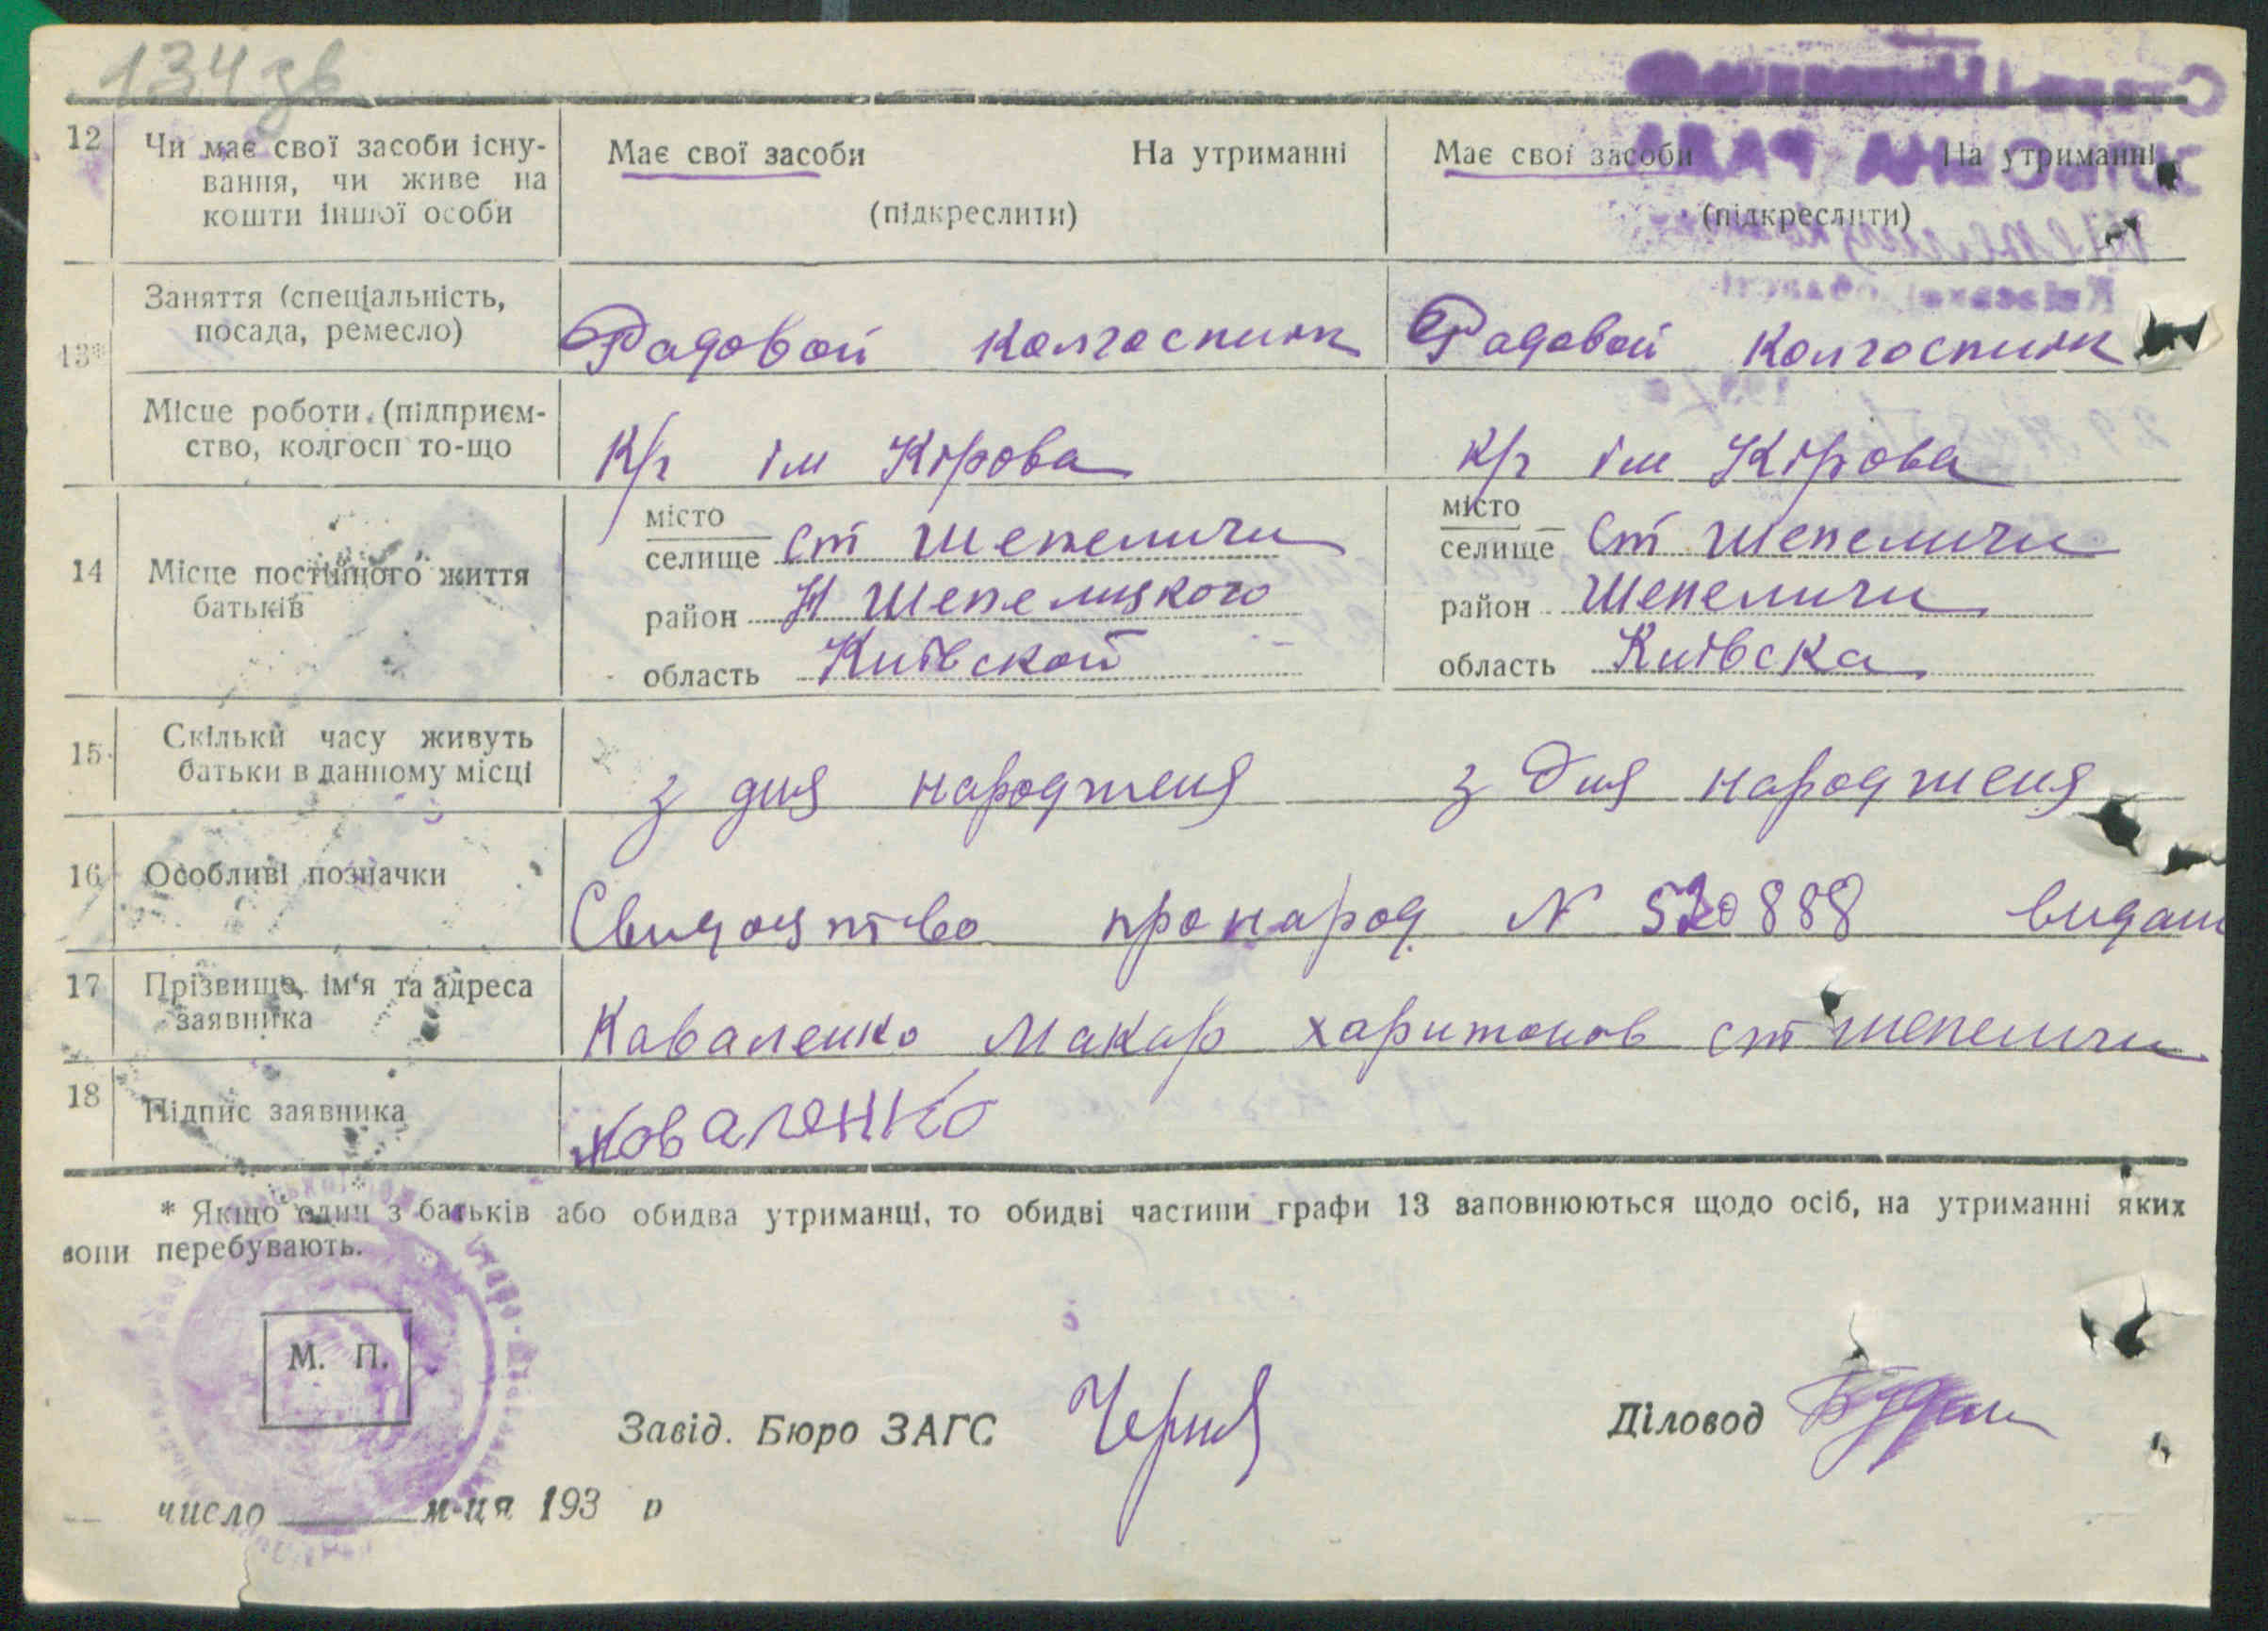 134 зв
12 Чи має свої засоби існу- Має свої засоби На утриманні Має свої засоби На утриманні
вання, чи живе на
кошти іншої особи (підкреслити) (підкреслити)
Заняття (спеціальність,
13* посада, ремесло) Радовой колгоспник Радовой колгоспник
Місце роботи (підприєм-
ство, колгосп то-що к/г ім Кірова к/г ім Кірова
місто місто
14 Місце постійного життя селище ст Шепеличи селище ст Шепеличи
батьків район Н Шепелицкого район Шепеличи
область Київской область Київска
15 Скільки часу живуть
батьки в данному місці з дня народженя з дня народженя
16 Особливі позначки Свидоятво про народ N 520888 видан
17 Прізвище, ім'я та адреса
заявника Коваленко Макар харитонов ст шепеличи
18 Підпис заявника Коваленко
* Якщо один з батьків або обидва утриманці, то обидві частини графи 13 заповнюються щодо осіб, на утриманні яких
вони перебувають.
М. П.
Завід. Бюро ЗАГС Діловод
число м-ця 193 р